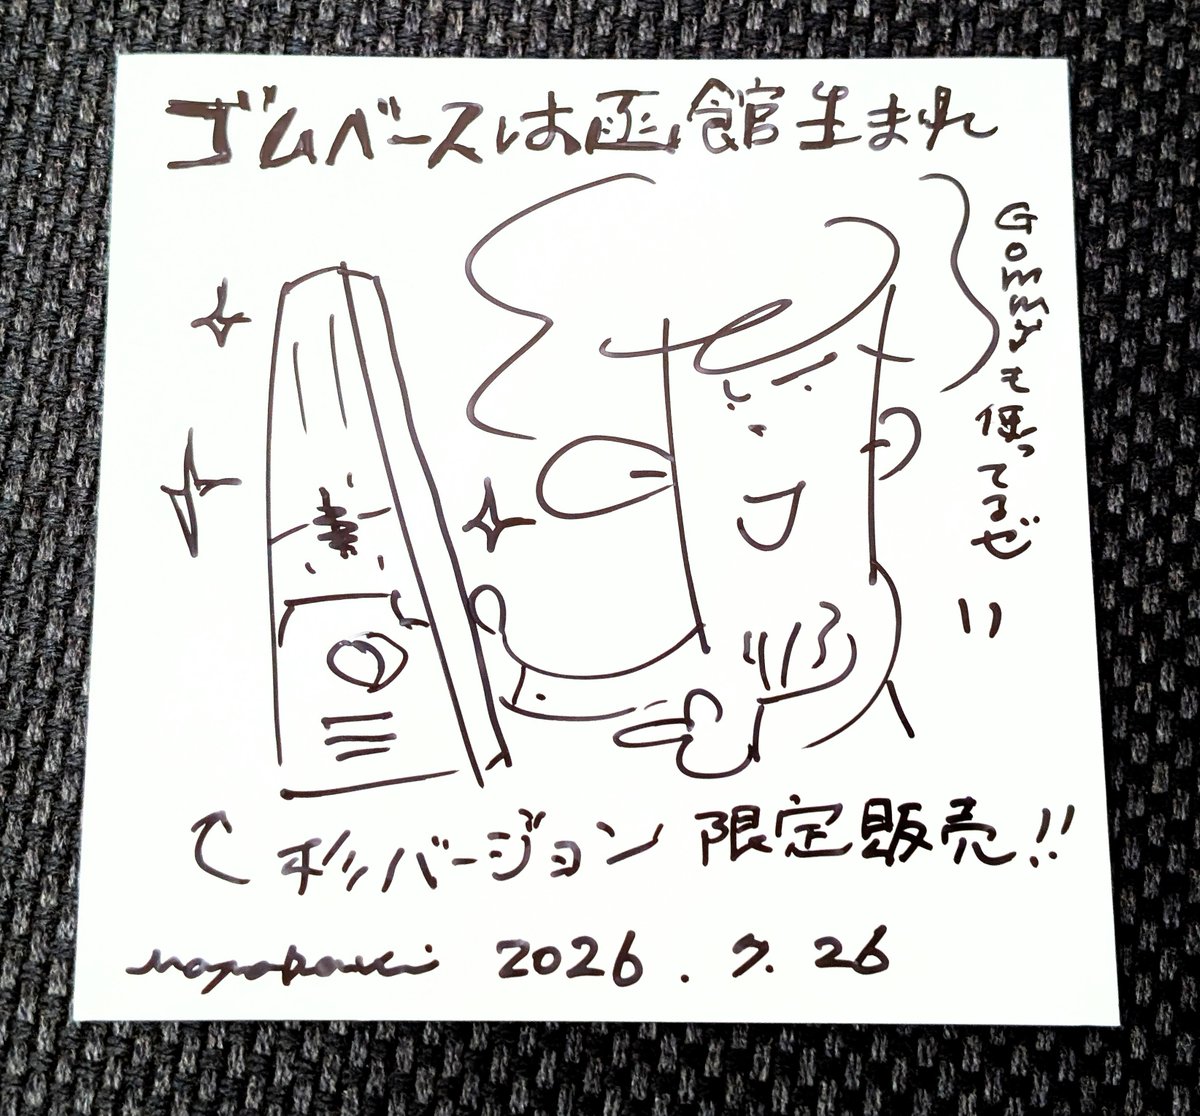 ゴムベースは函館生まれ
Gommyも使ってるぜ!!
杉バージョン 限定販売!!
2026.7.26